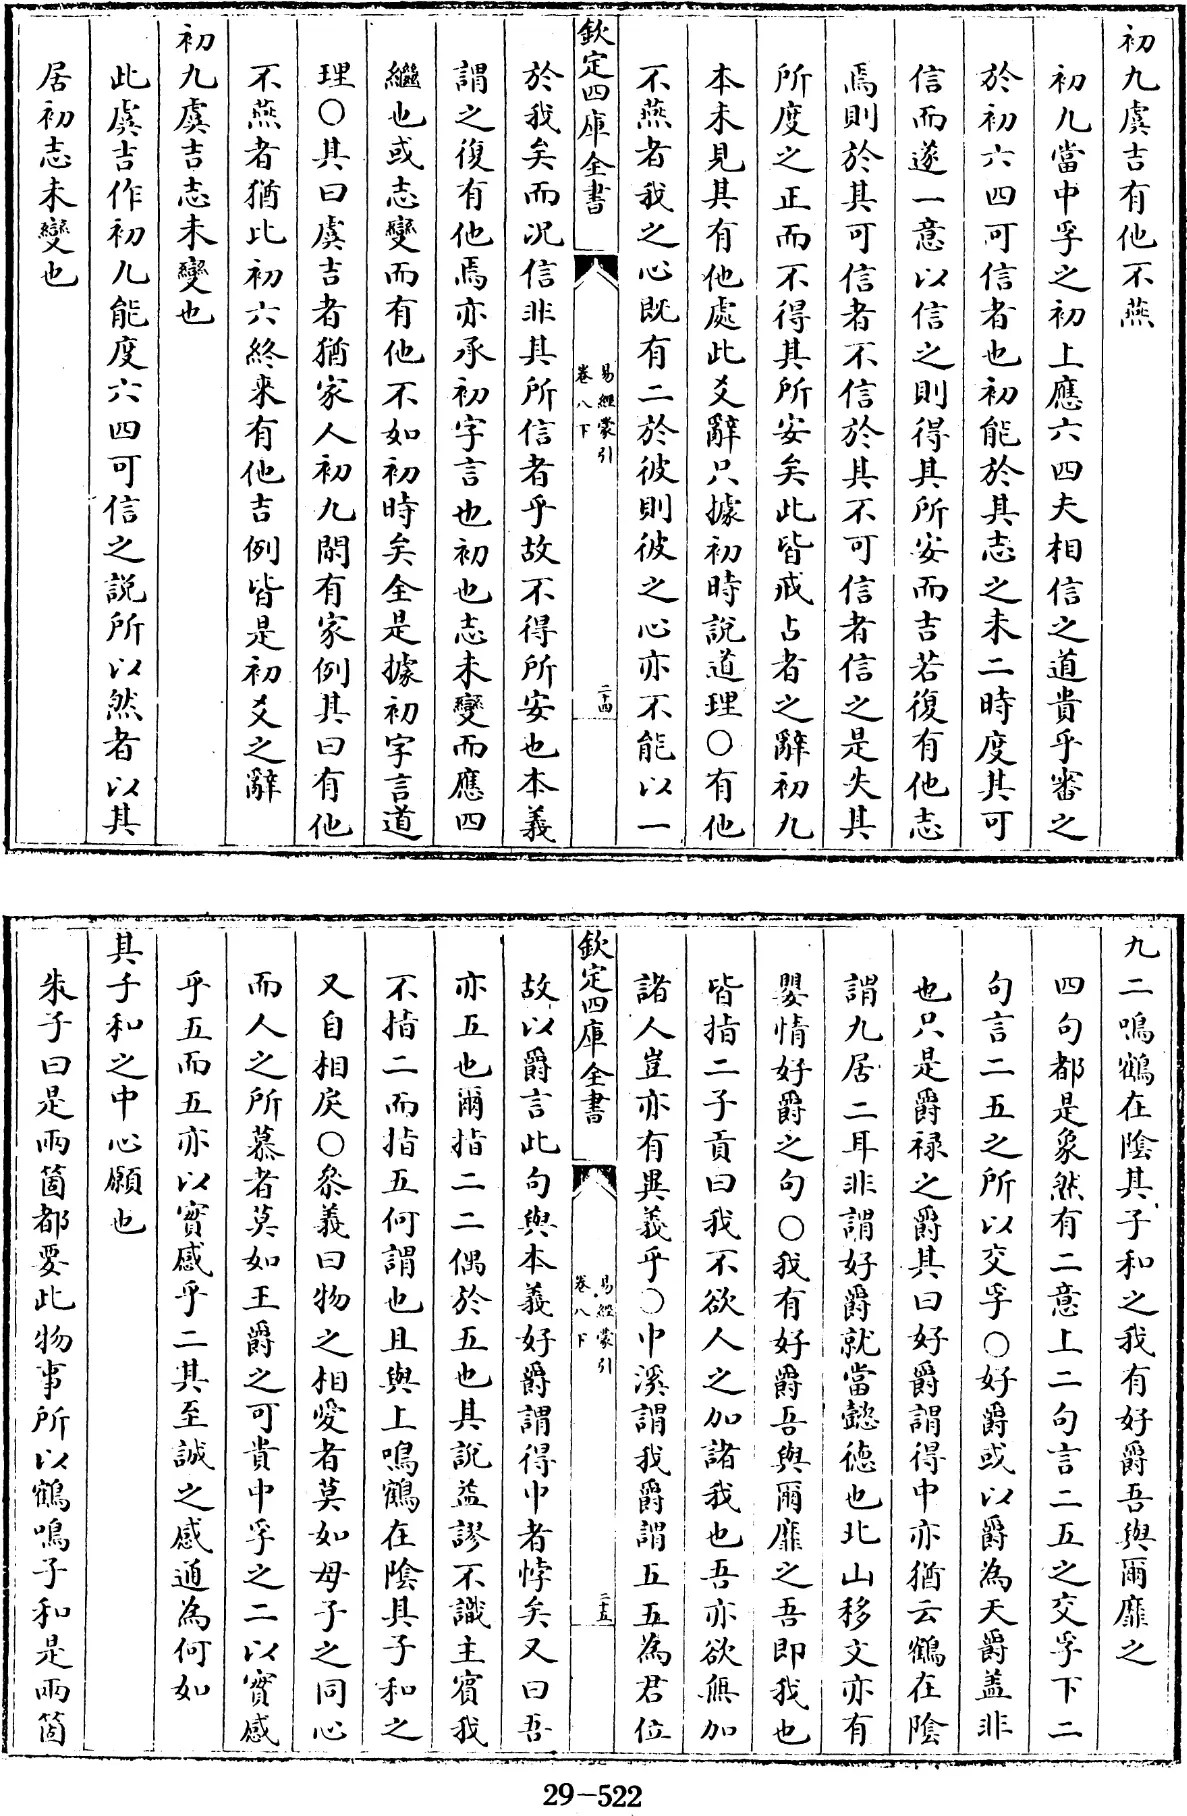 初九虞吉有他不燕
初九當中孚之初上應六四夫相信之道貴乎審之
於初六四可信者也初能於其志之未二時度其可
信而遂一意以信之則得其所安而吉若復有他志
焉則於其可信者不信於其不可信者信之是失其
所度之正而不得其所安矣此皆戒占者之辭初九
本未見其有他處此爻辭只據初時說道理○有他
不燕者我之心既有二於彼則彼之心亦不能以一
欽定四庫全書
易經蒙引
卷八下
二十四
於我矣而况信非其所信者乎故不得所安也本義
謂之復有他焉亦承初字言也初也志未變而應四
繼也或志變而有他不如初時矣全是據初字言道
理○其曰虞吉者猶家人初九閑有家例其曰有他
不燕者猶比初六終來有他吉例皆是初爻之辭
初九虞吉志未變也
此虞吉作初九能度六四可信之說所以然者以其
居初志未變也
九二鳴鶴在陰其子和之我有好爵吾與爾靡之
四句都是象然有二意上二句言二五之交孚下二
句言二五之所以交孚○好爵或以爵為天爵盖非
也只是爵祿之爵其曰好爵謂得中亦猶云鶴在陰
謂九居二耳非謂好爵就當懿德也北山移文亦有
嬰情好爵之句○我有好爵吾與爾靡之吾即我也
皆指二子貢曰我不欲人之加諸我也吾亦欲無加
諸人豈亦有異義乎○中溪謂我爵謂五五為君位
欽定四庫全書
易經蒙引
卷八下
二十五
故以爵言此句與本義好爵謂得中者悖矣又曰吾
亦五也爾指二二偶於五也其說益謬不識主賓我
不指二而指五何謂也且與上鳴鶴在陰其子和之
又自相戾○叅義曰物之相愛者莫如母子之同心
而人之所慕者莫如王爵之可貴中孚之二以實感
乎五而五亦以實感乎二其至誠之感通為何如
其子和之中心願也
朱子曰是兩箇都要此物事所以鶴鳴子和是兩箇
29-522